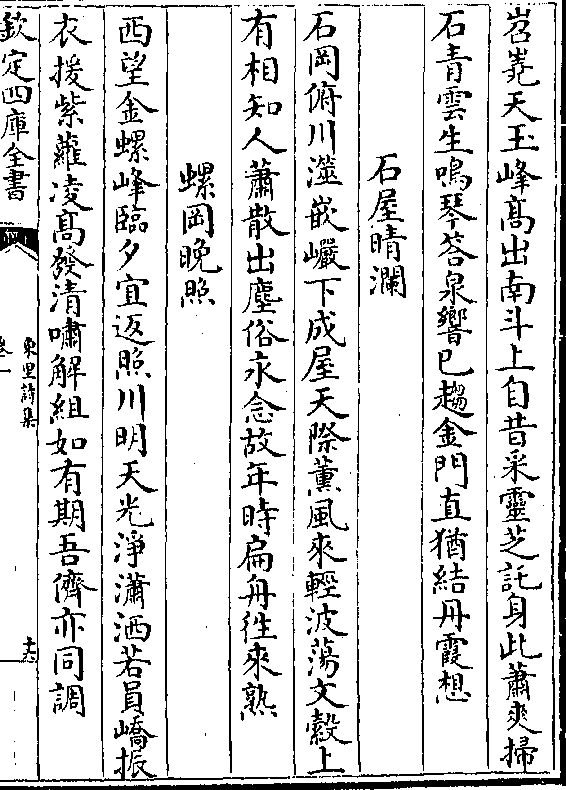 岧嶤天玉峰高出南斗上自昔采靈芝託身此蕭爽掃
石青雲生鳴琴答泉響已趨金門直猶結丹霞想
石屋晴瀾
石岡俯川澨嵌巘下成屋天際薰風來輕波蕩文縠上
有相知人蕭散出塵俗永念故年時扁舟往來熟
螺岡晚照
西望金螺峰臨夕宜返照川明天光淨瀟洒若員嶠振
衣援紫蘿凌高發清嘯解組如有期吾儕亦同調
欽定四庫全書
東里詩集
卷一
十六